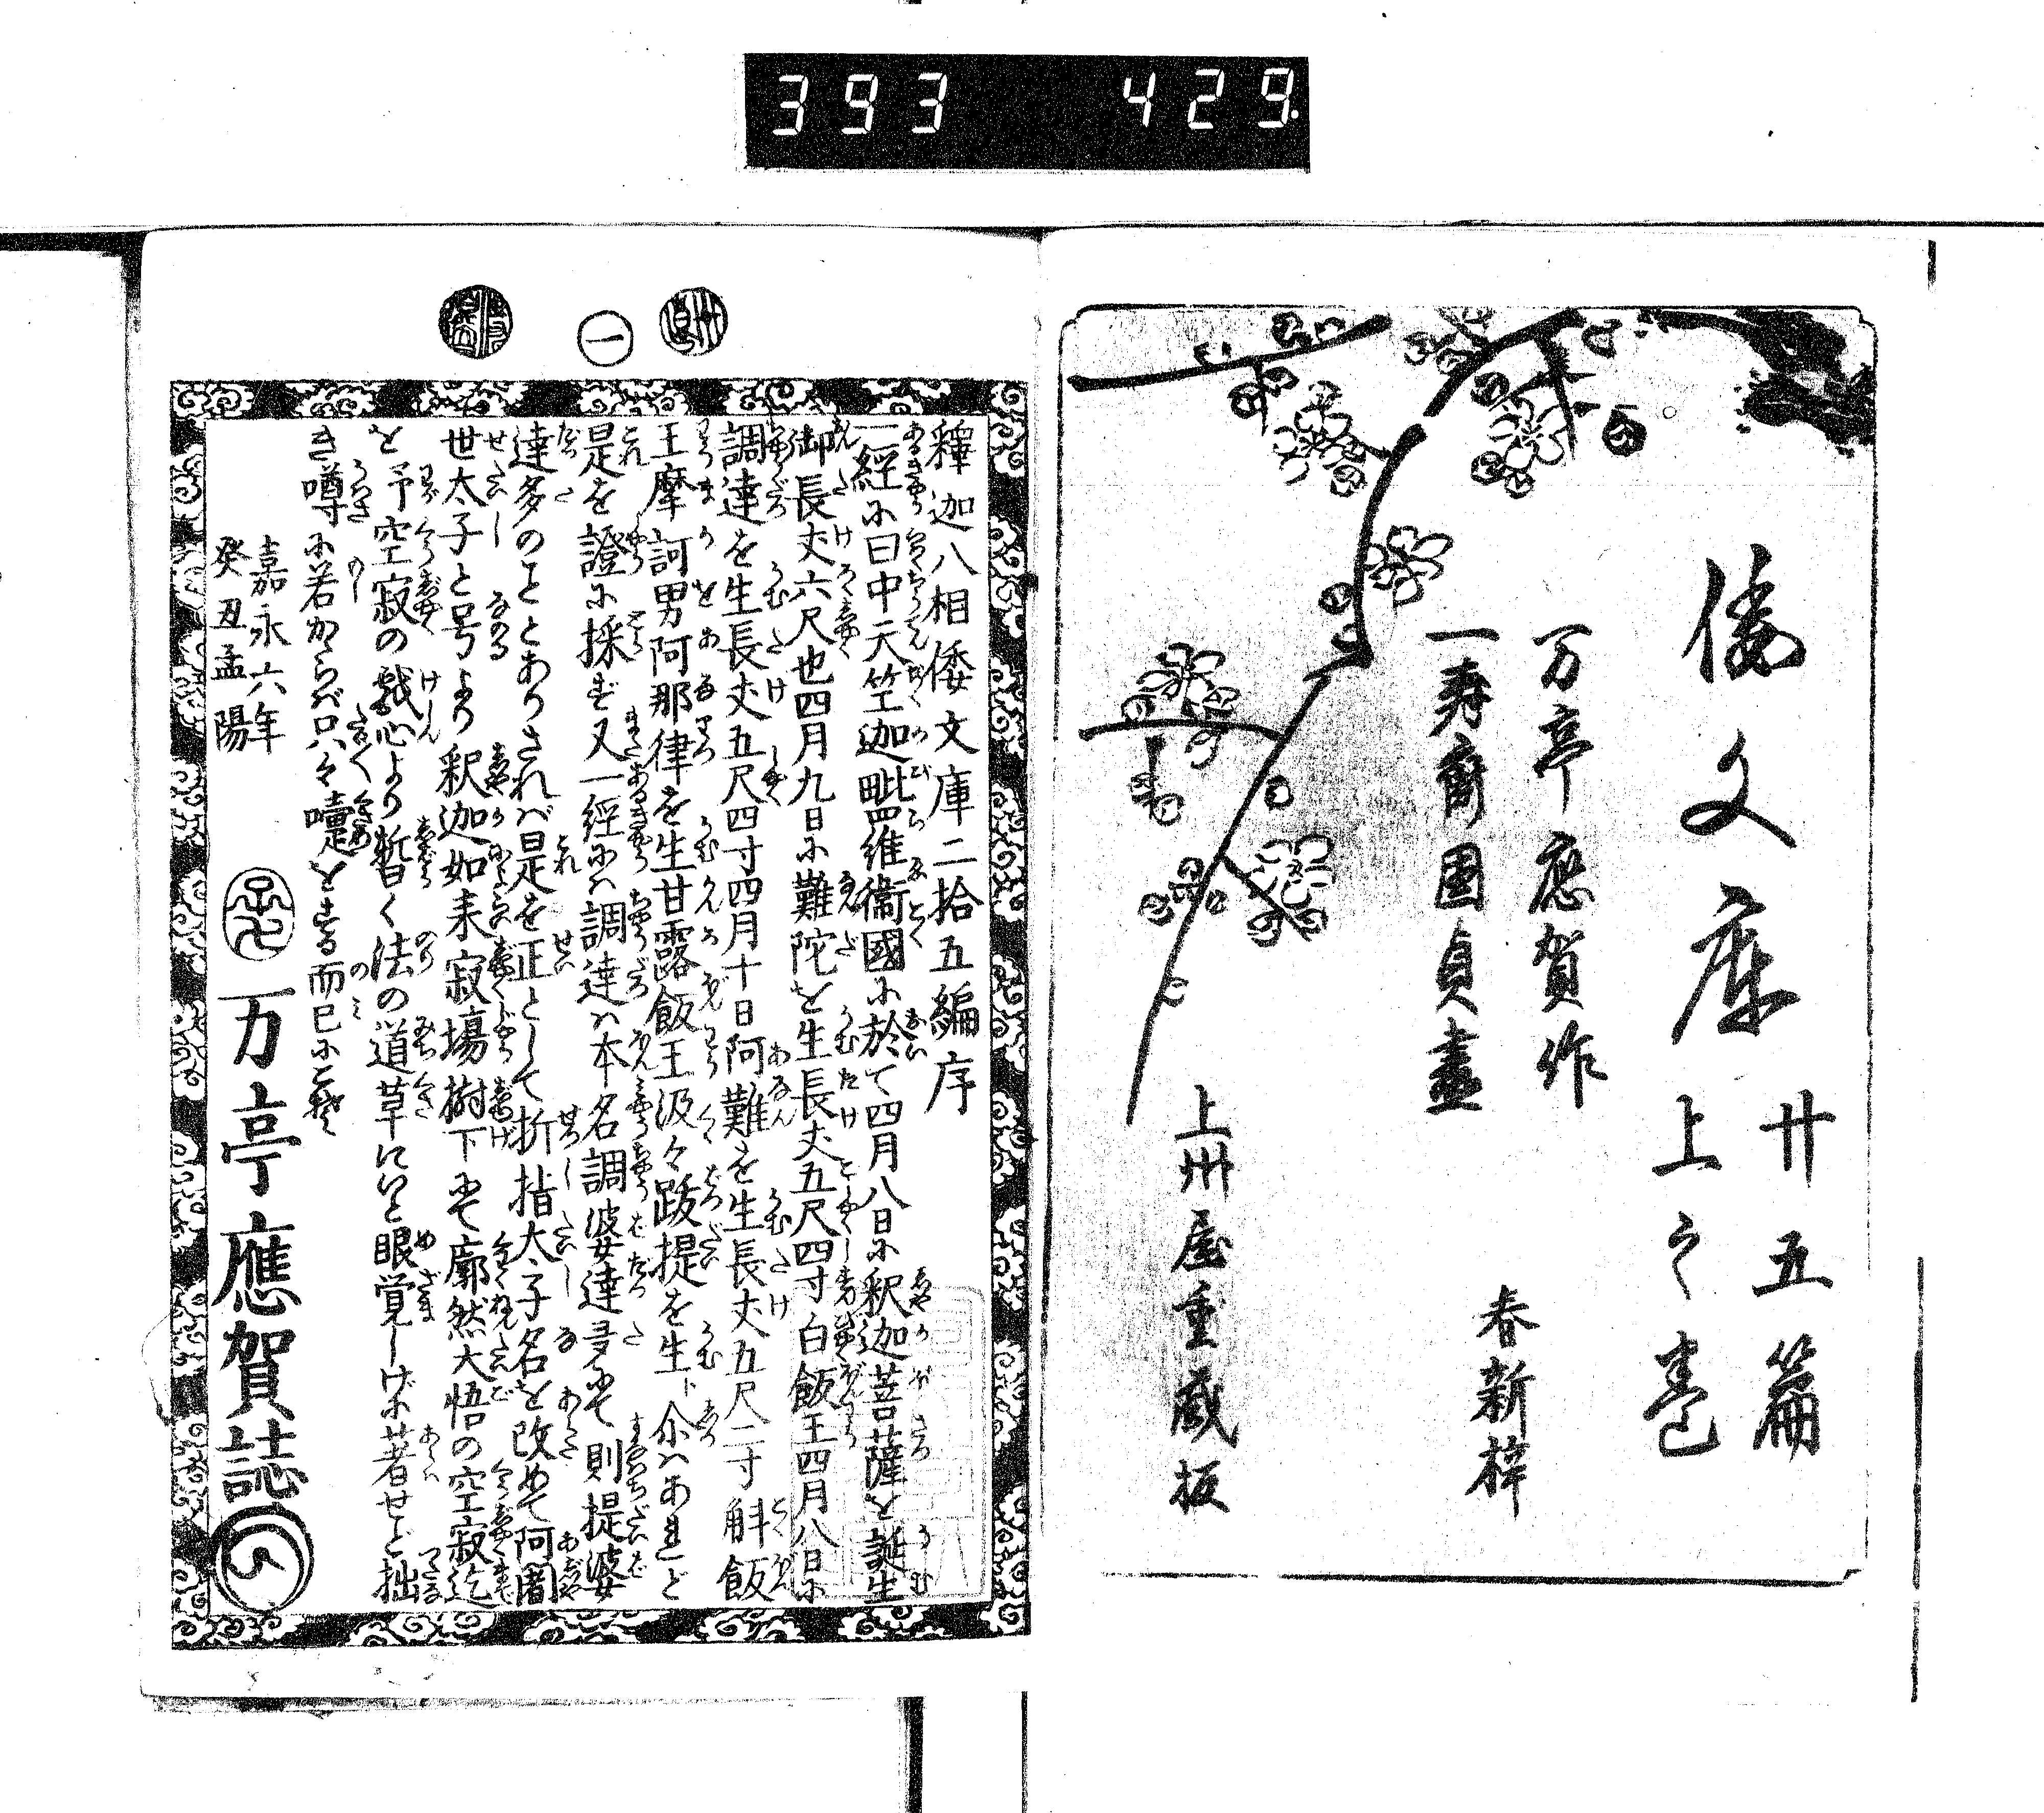 393 429
倭文庫
廿五篇
上之巻
万亭應賀作
一壽齋國貞畫
春新梓
上州屋重蔵板
一
釋迦八相倭文庫二拾五編序
一經に曰中天竺迦毗羅維衞國に於て四月八日に釈迦菩薩を誕生
御長丈六尺也四月九日に難陀を生長丈五尺四寸白飯王四月八日に
調達を生長丈五尺四寸四月十日阿難を生長丈五尺二寸斛飯
王摩訶男阿那律を生甘露飯王汲々跋提を生ト介ハあれど
是を證に採ず又一經にハ調達ハ本名調婆達多にて則提婆
達多のこととありされバ是を正として折指太子名を改めて阿闍
世太子と号より釈迦如来寂場樹下にて廓然大悟の空寂迄
を予空寂の戯心より暫く法の道草にいと眼覚しげに著せど拙
き噂に若からバ只々嚏をする而已にこそ
嘉永六年
癸丑孟陽
万亭應賀誌